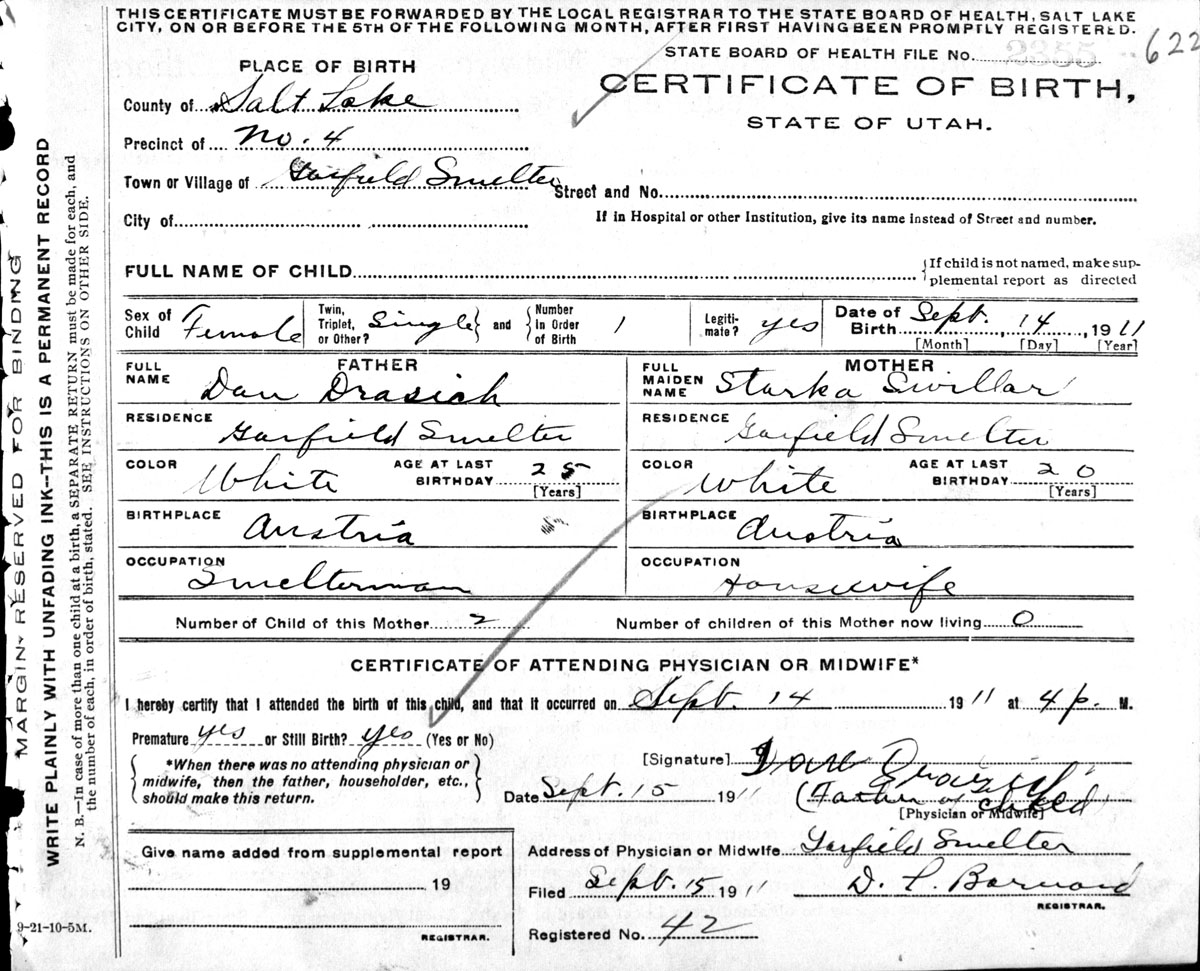 THIS CERTIFICATE MUST BE FORWARDED BY THE LOCAL REGISTRAR TO THE STATE BOARD OF HEALTH, SALT LAKE
CITY, ON OR BEFORE THE 5TH OF THE FOLLOWING MONTH, AFTER FIRST HAVING BEEN PROMPTLY REGISTERED.
STATE BOARD OF HEALTH FILE No. 2355 622
PLACE OF BIRTH
CERTIFICATE OF BIRTH,
STATE OF UTAH.
County of Salt Lake
Precinct of No. 4
Town or Village of Garfield Smelter Street and No.
City of If in Hospital or other Institution, give its name instead of Street and number.
FULL NAME OF CHILD {If child is not named, make sup-
plemental report as directed
Sex of Child Female Twin, Triplet, or Other? Single } and { Number In Order of Birth 1 Legiti-mate? yes Date of Birth Sept. 14, 1911
[Month] [Day] [Year]
FATHER
FULL NAME Dan Drasich
RESIDENCE Garfield Smelter
COLOR White AGE AT LAST BIRTHDAY 25
[Years]
BIRTHPLACE Austria
OCCUPATION Smelterman
MOTHER
FULL MAIDEN NAME Starka Swillar
RESIDENCE Garfield Smelter
COLOR White AGE AT LAST BIRTHDAY 20
[Years]
BIRTHPLACE Austria
OCCUPATION Housewife
Number of Child of this Mother 2 Number of children of this Mother now living 0
CERTIFICATE OF ATTENDING PHYSICIAN OR MIDWIFE*
I hereby certify that I attended the birth of this child, and that it occurred on Sept. 14 1911 at 4 p. M.
Premature yes or Still Birth? yes (Yes or No)
{ *When there was no attending physician or
midwife, then the father, householder, etc.,
should make this return. }
[Signature] Dan Drasich
Date Sept. 15 1911 (Father of child)
[Physician or Midwife]
Give name added from supplemental report
19
REGISTRAR.
Address of Physician or Midwife Garfield Smelter
Filed Sept. 15 1911 D. L. Barnard
REGISTRAR.
Registered No. 42
9-21-10-5M.
MARGIN RESERVED FOR BINDING
WRITE PLAINLY WITH UNFADING INK--THIS IS A PERMANENT RECORD
N. B.—In case of more than one child at a birth, a SEPARATE RETURN must be made for each, and
the number of each, in order of birth, stated. SEE INSTRUCTIONS ON OTHER SIDE.